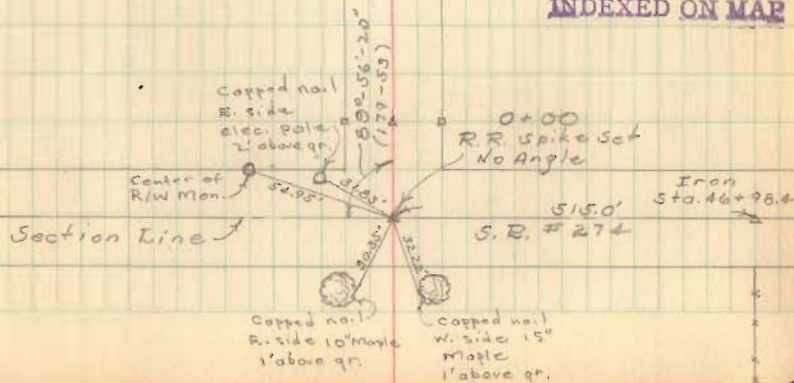 INDEXED ON MAP
88°-56'-20"
(177-53)
Capped nail
E. side
elec. pole
2' above gr.
0+00
R.R. Spike Set
No Angle
Center of
R/W Mon.
54.95'
31.83'
Iron
Sta. 46+98.4
515.0'
S.R. #274
Section Line
30.35'
32.22'
Capped nail
E. side 10" Maple
1' above gr.
Capped nail
W. side 15"
Maple
1' above gr.